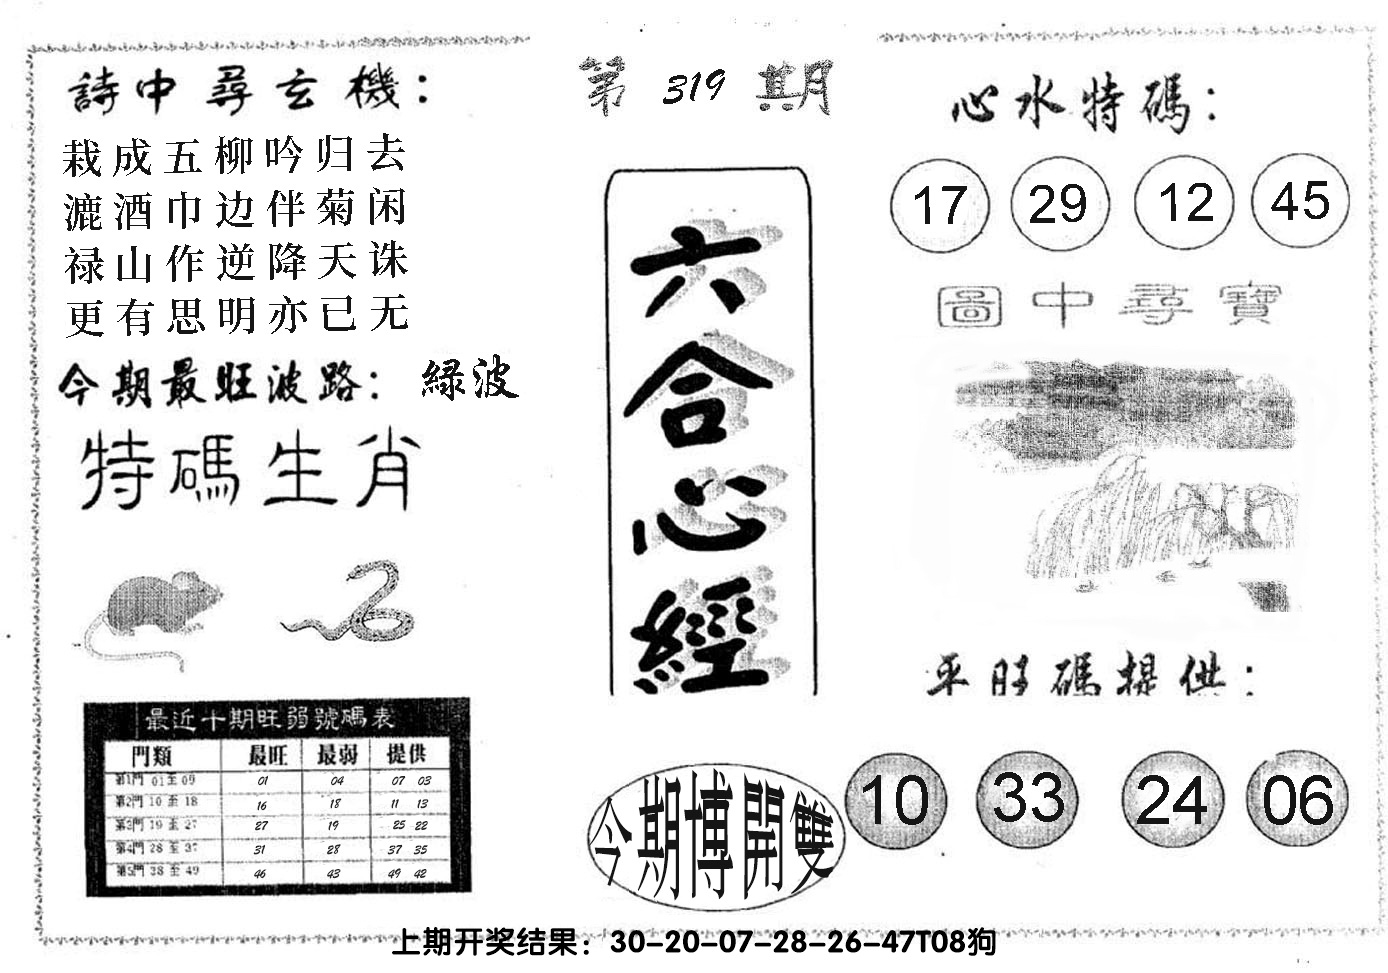 第 319 期
詩中尋玄機：
栽成五柳吟归去
漉酒巾边伴菊闲
禄山作逆降天诛
更有思明亦已无
今期最旺波路：綠波
特碼生肖
最近十期旺弱號碼表
門類 最旺 最弱 提供
第1門 01至09 01 04 07 03
第2門 10至18 16 18 11 13
第3門 19至27 27 19 25 22
第4門 28至37 31 28 37 35
第5門 38至49 46 43 49 42
六合心經
今期博開雙
心水特碼：
17 29 12 45
圖中尋寶
平旺碼提供：
10 33 24 06
上期开奖结果：30-20-07-28-26-47T08狗